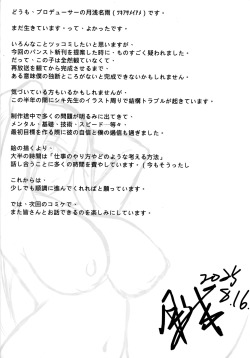 どうも、プロデューサーの月浅名雨(ﾂｷｱｻﾒｲｱﾒ)です。
まだ生きています・って・よかったです。
いろんなことツッコミしたいと思いますが、
今回のパンスト新刊を提案した時に、ものすごく疑われました。
だって、この子は全然観ていなくて、
再放送を観てから完成させるまで、
ある意味僕の独断ところがないと完成できないかもしれません。
気づいている方もいるかもしれませんが、
この半年の間にシキ先生のイラスト周りで結構トラブルが起きています。
制作途中で多くの問題が明るみに出てきて、
メンタル・基礎・技術・スピード…等々、
最初目標を作る際に彼の自信と僕の過信が過ぎました。
絵の描くより、
大半の時間は「仕事のやり方やどのような考える方法」
話し合うことに多くの時間を費やしています。(今もそうったし
これからは、
少しでも順調に進んでくれればと願っています。
では、次回のコミケで、
また皆さんとお話できるのを楽しみにしています。
2025
8.16.